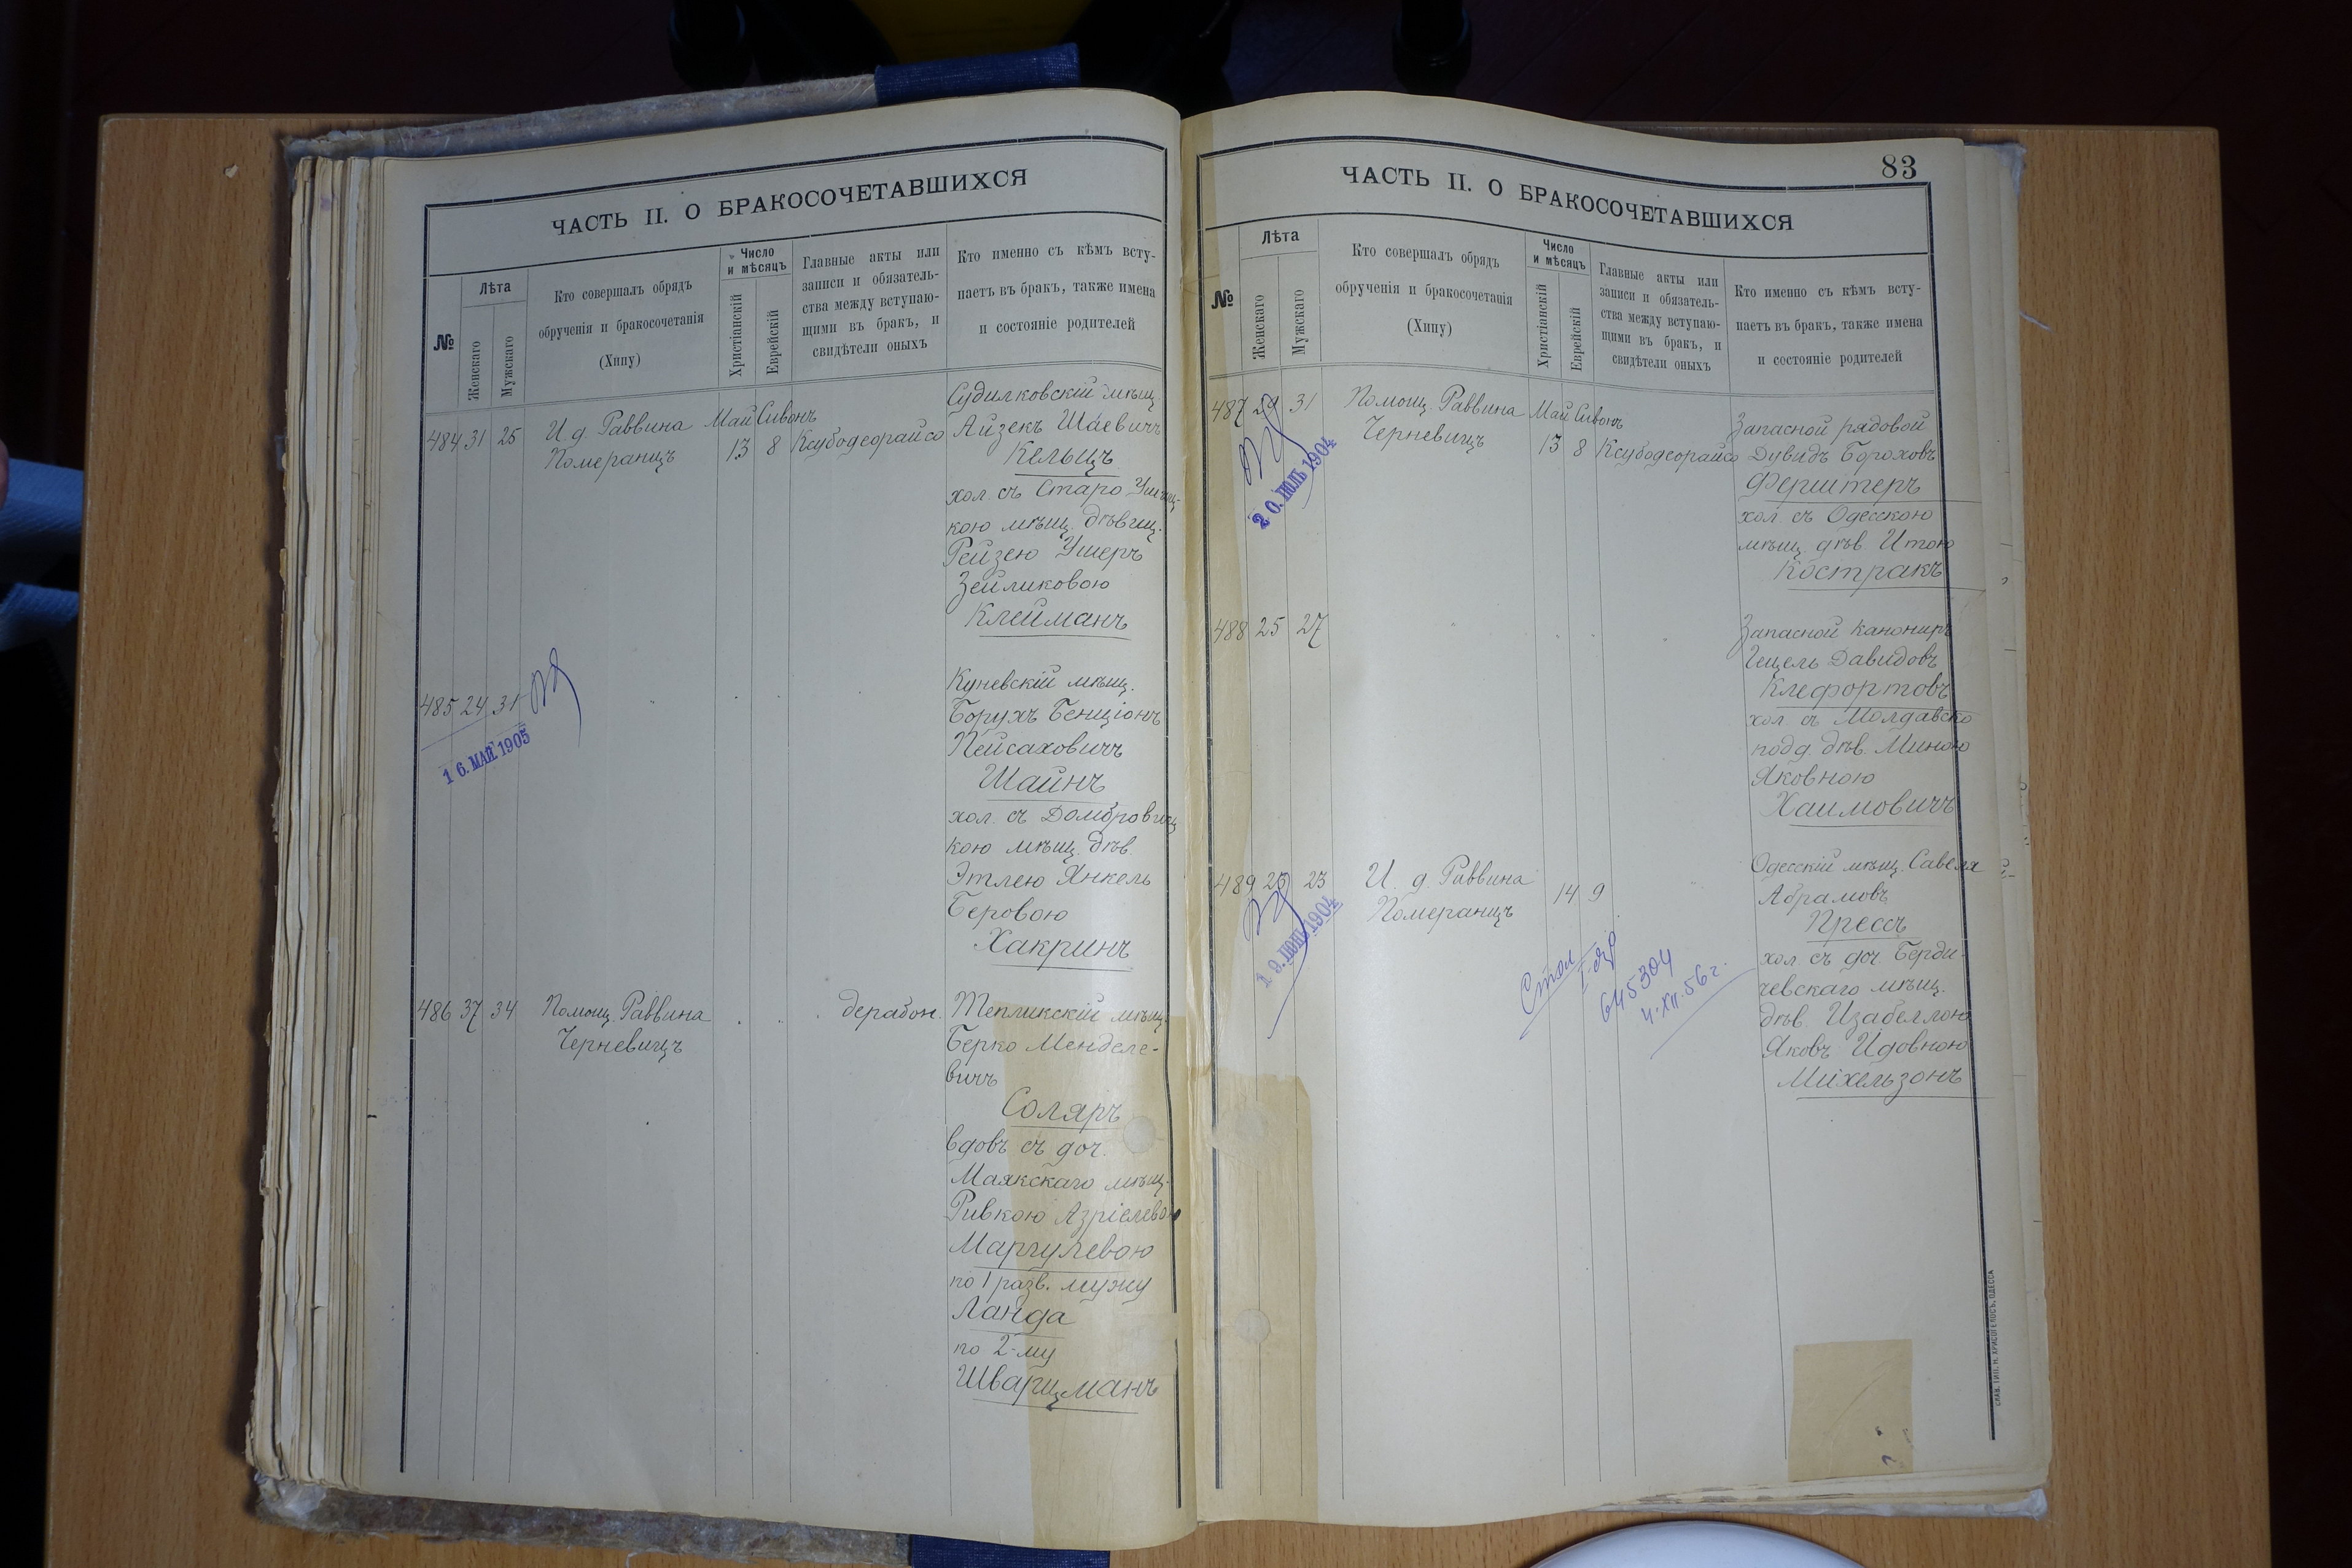 ЧАСТЬ II. О БРАКОСОЧЕТАВШИХСЯ
№
Лѣта
Женскаго
Мужскаго
Кто совершалъ обрядъ
обрученія и бракосочетанія
(Хипу)
Число
и мѣсяцъ
Христіанскій
Еврейскій
Главные акты или
записи и обязатель-
ства между вступаю-
щими въ бракъ, и
свидѣтели оныхъ
Кто именно съ кѣмъ всту-
паетъ въ бракъ, также имена
и состояніе родителей
484 31 25
И. д. Раввина
Померанцъ
Май Сивонъ
13 8
Ксубодеорайсо
Судилковскій мѣщ.
Айзекъ Шаевичъ
Кельцъ
хол. съ Старо Ушиц-
кою мѣщ. дѣвиц.
Рейзею Ушеръ
Зейликовою
Клейманъ
485 24 31
16. МАЙ 1905
Куневскій мѣщ.
Борухъ Бенціонъ
Пейсаховичъ
Шайнъ
хол. съ Домбровиц
кою мѣщ. дѣв.
Этлею Янкель
Беровою
Хакринъ
486 37 34
Помощ. Раввина
Черневицъ
дерабон.
Тепликскій мѣщ.
Берко Менделе-
вичъ
Соляръ
вдовъ съ доч.
Маякскаго мѣщ.
Ривкою Азріелево
Маргулевою
по 1 разв. мужу
Ланда
по 2-му
Шварцманъ
83
ЧАСТЬ II. О БРАКОСОЧЕТАВШИХСЯ
№
Лѣта
Женскаго
Мужскаго
Кто совершалъ обрядъ
обрученія и бракосочетанія
(Хипу)
Число
и мѣсяцъ
Христіанскій
Еврейскій
Главные акты или
записи и обязатель-
ства между вступаю-
щими въ бракъ, и
свидѣтели оныхъ
Кто именно съ кѣмъ всту-
паетъ въ бракъ, также имена
и состояніе родителей
487 29 31
20. ІЮЛЬ 1904
Помощ. Раввина
Черневицъ
Май Сивонъ
13 8
Ксубодеорайсо
Запасной рядовой
Дувидъ Бороховъ
Ферштеръ
хол. съ Одесскою
мѣщ. дѣв. Итою
Костракъ
488 25 27
Запасной канониръ
Гецель Давидовъ
Клефортовъ
хол. съ Молдавско
подд. дѣв. Миною
Яковною
Хаимовичъ
489 23 23
И. д. Раввина
Померанцъ
14 9
Одесскій мѣщ. Савелл
Абрамовъ
Прессъ
хол съ доч. Берди-
чевскаго мѣщ.
дѣв. Изабеллою
Яковъ Идовною
Михельзонъ
645304
4.XII.56 г.
СЛАВ. ТИП. Н. ХРИСОГЕЛОСЪ, ОДЕССА